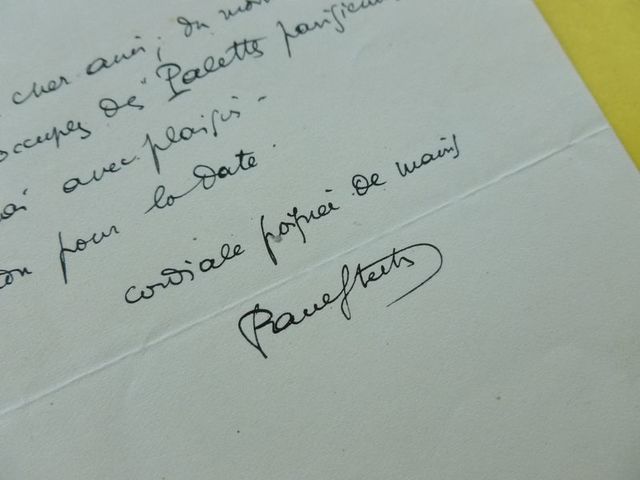 cher ami, du moin
occupes des "Palette parisienne
avec plaisir -
pour la date.
cordiale poignée de mains